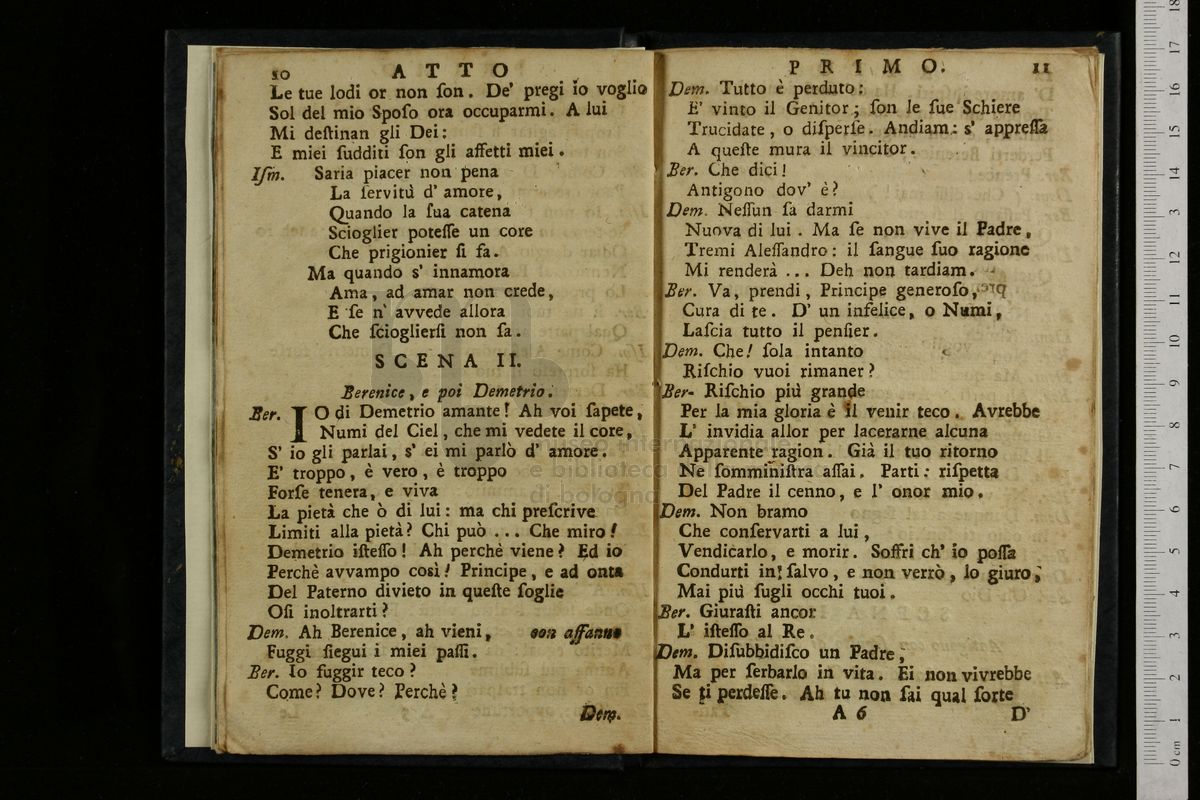 10 ATTO
Le tue lodi or non ſon. De' pregi io voglio
Sol del mio Spoſo ora occuparmi. A lui
Mi deſtinan gli Dei:
E miei ſudditi ſon gli affetti miei.
Iſm. Saria piacer non pena
La ſervitù d' amore,
Quando la ſua catena
Scioglier poteſſe un core
Che prigionier ſi fa.
Ma quando s' innamora
Ama, ad amar non crede,
E ſe n' avvede allora
Che ſcioglierſi non ſa.
SCENA II.
Berenice, e poi Demetrio.
Ber. IO di Demetrio amante! Ah voi ſapete,
Numi del Ciel, che mi vedete il core,
S' io gli parlai, s' ei mi parlò d' amore.
E' troppo, è vero, è troppo
Forſe tenera, e viva
La pietà che ò di lui: ma chi preſcrive
Limiti alla pietà? Chi può ... Che miro!
Demetrio iſteſſo! Ah perchè viene? Ed io
Perchè avvampo così! Principe, e ad onta
Del Paterno divieto in queſte ſoglie
Oſi inoltrarti?
Dem. Ah Berenice, ah vieni, con affanno
Fuggi ſiegui i miei paſſi.
Ber. Io fuggir teco?
Come? Dove? Perchè?
Dem.
PRIMO. 11
Dem. Tutto è perduto:
E' vinto il Genitor; ſon le ſue Schiere
Trucidate, o diſperſe. Andiam: s' appreſſa
A queſte mura il vincitor.
Ber. Che dici!
Antigono dov' è?
Dem. Neſſun ſa darmi
Nuova di lui. Ma ſe non vive il Padre,
Tremi Aleſſandro: il ſangue ſuo ragione
Mi renderà ... Deh non tardiam.
Ber. Va, prendi, Principe generoſo,
Cura di te. D' un infelice, o Numi,
Laſcia tutto il penſier.
Dem. Che! ſola intanto
Riſchio vuoi rimaner?
Ber- Riſchio più grande
Per la mia gloria è il venir teco. Avrebbe
L' invidia allor per lacerarne alcuna
Apparente ragion. Già il tuo ritorno
Ne ſomminiſtra aſſai. Parti: riſpetta
Del Padre il cenno, e l' onor mio.
Dem. Non bramo
Che conſervarti a lui,
Vendicarlo, e morir. Soffri ch' io poſſa
Condurti in ſalvo, e non verrò, lo giuro,
Mai più ſugli occhi tuoi.
Ber. Giuraſti ancor
L' iſteſſo al Re.
Dem. Diſubbidiſco un Padre,
Ma per ſerbarlo in vita. Ei non vivrebbe
Se ti perdeſſe. Ah tu non ſai qual ſorte
A 6 D'
museo internazionale
e biblioteca
di bologna
0 cm 1 2 3 4 5 6 7 8 9 10 11 12 13 14 15 16 17 18